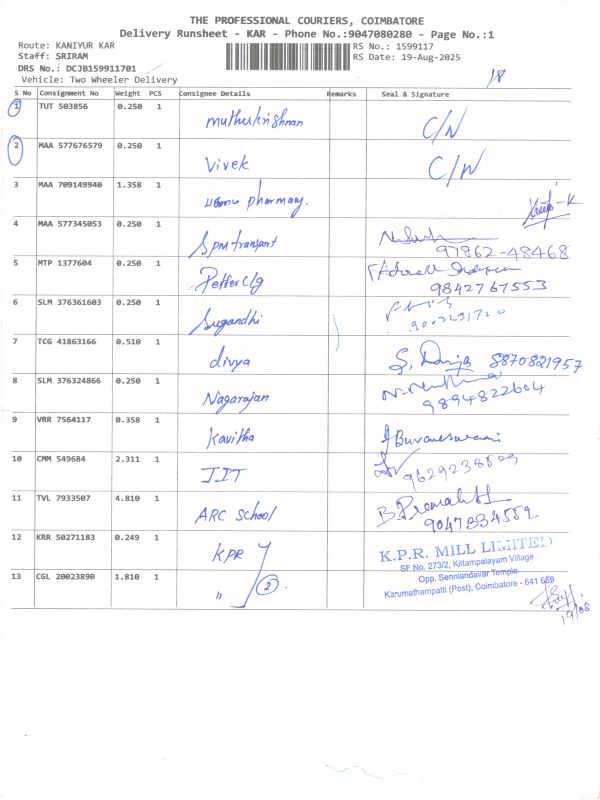 THE PROFESSIONAL COURIERS, COIMBATORE
Delivery Runsheet - KAR - Phone No.:9047080280 - Page No.:1
Route: KANIYUR KAR RS No.: 1599117
Staff: SRIRAM RS Date: 19-Aug-2025
DRS No.: DCJB159911701
Vehicle: Two Wheeler Delivery 18
S No Consignment No Weight PCS Consignee Details Remarks Seal & Signature
1 TUT 503856 0.250 1 Muthukrishnan C/N
2 MAA 577676579 0.250 1 Vivek C/N
3 MAA 709149940 1.358 1 pharmacy.
4 MAA 577345053 0.250 1 Spm transport 97862-48468
5 MTP 1377604 0.250 1 9842767553
6 SLM 376361603 0.250 1 Sugandhi
7 TCG 41863166 0.510 1 divya 8870821957
8 SLM 376324866 0.250 1 Nagarajan 9894822604
9 VRR 7564117 0.358 1 Kavitha Buvaneswari
10 CMM 549684 2.311 1 JIT
11 TVL 7933507 4.810 1 ARC School
12 KRR 50271183 0.249 1 KPR
13 CGL 20023890 1.810 1 " 2
K.P.R. MILL LIMITED
SF No. 273/2, Kittampalayam Village
Opp. Senniandavar Temple
Karumathampatti (Post), Coimbatore - 641 659
19/08